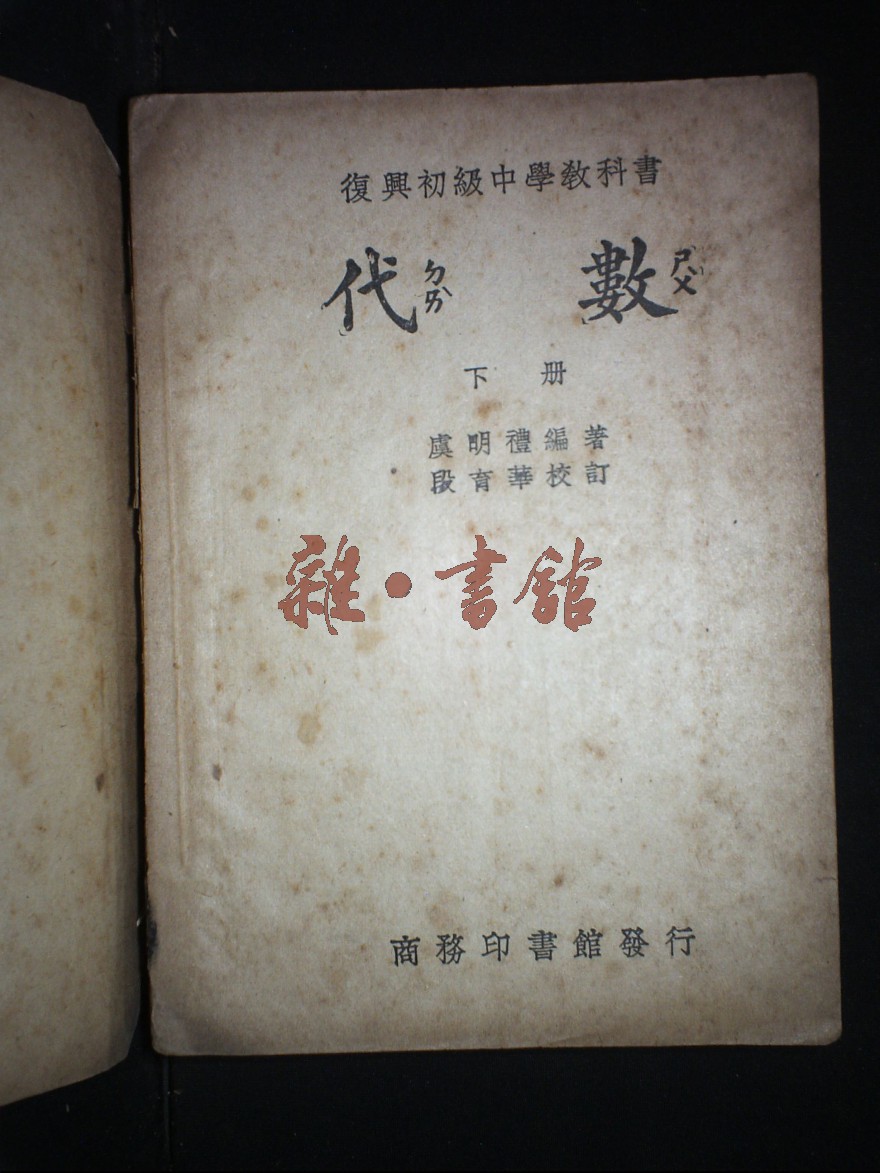 復興初級中學教科書
代ㄉㄞˋ 數ㄕㄨˋ
下册
虞明禮編著
段育華校訂
雜·書館
商務印書館發行